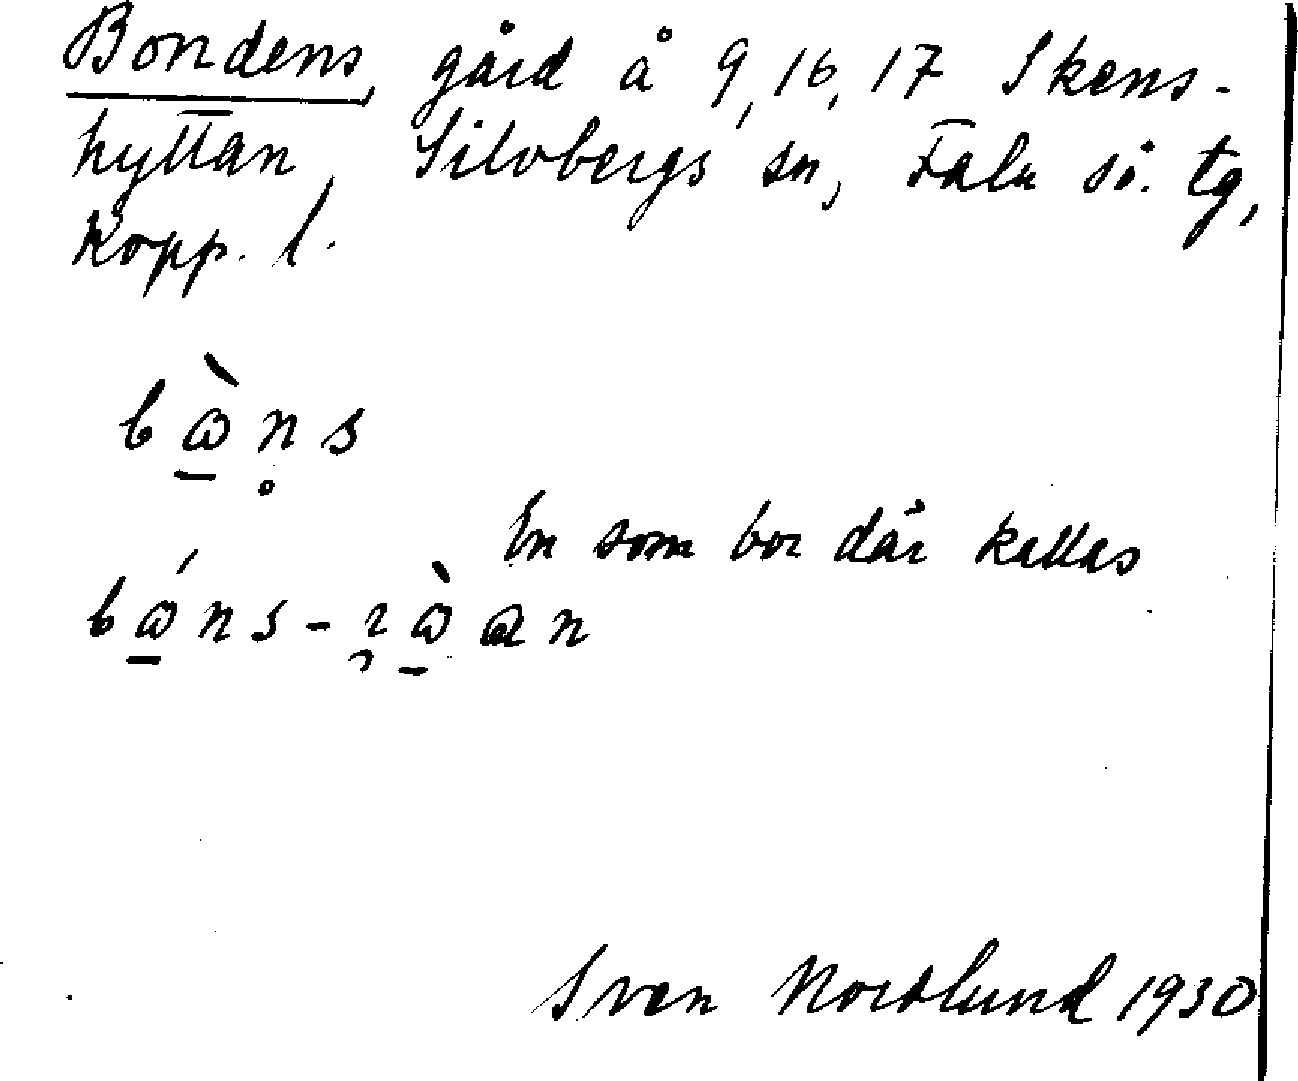 Bondens, gård å 9, 16, 17 Skens-
hyttan, Silvbergs sn, Falu sö. tg,
Kopp. l.
bὼ̱n̥s
En som bor där kallas
bώ̱ns-ɹὼ̱an
Sven Nordlund 1930